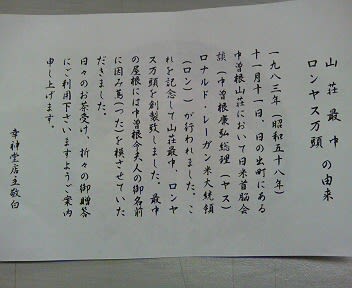 山荘最中
ロンヤス万頭 の由来
一九八三年（昭和五十八年）
十一月十一日、日の出町にある
中曽根山荘において日米首脳会
談（中曽根康弘総理（ヤス）
ロナルド・レーガン米大統領
（ロン））が行われました。こ
れを記念して山荘最中、ロンヤ
ス万頭を創製致しました。最中
の屋根には中曽根令夫人の御名前
に因み蔦（つた）を模させていた
だきました。
日々のお茶受け、折々の御贈答
にご利用下さいますようご案内
申し上げます。
幸神堂店主敬白